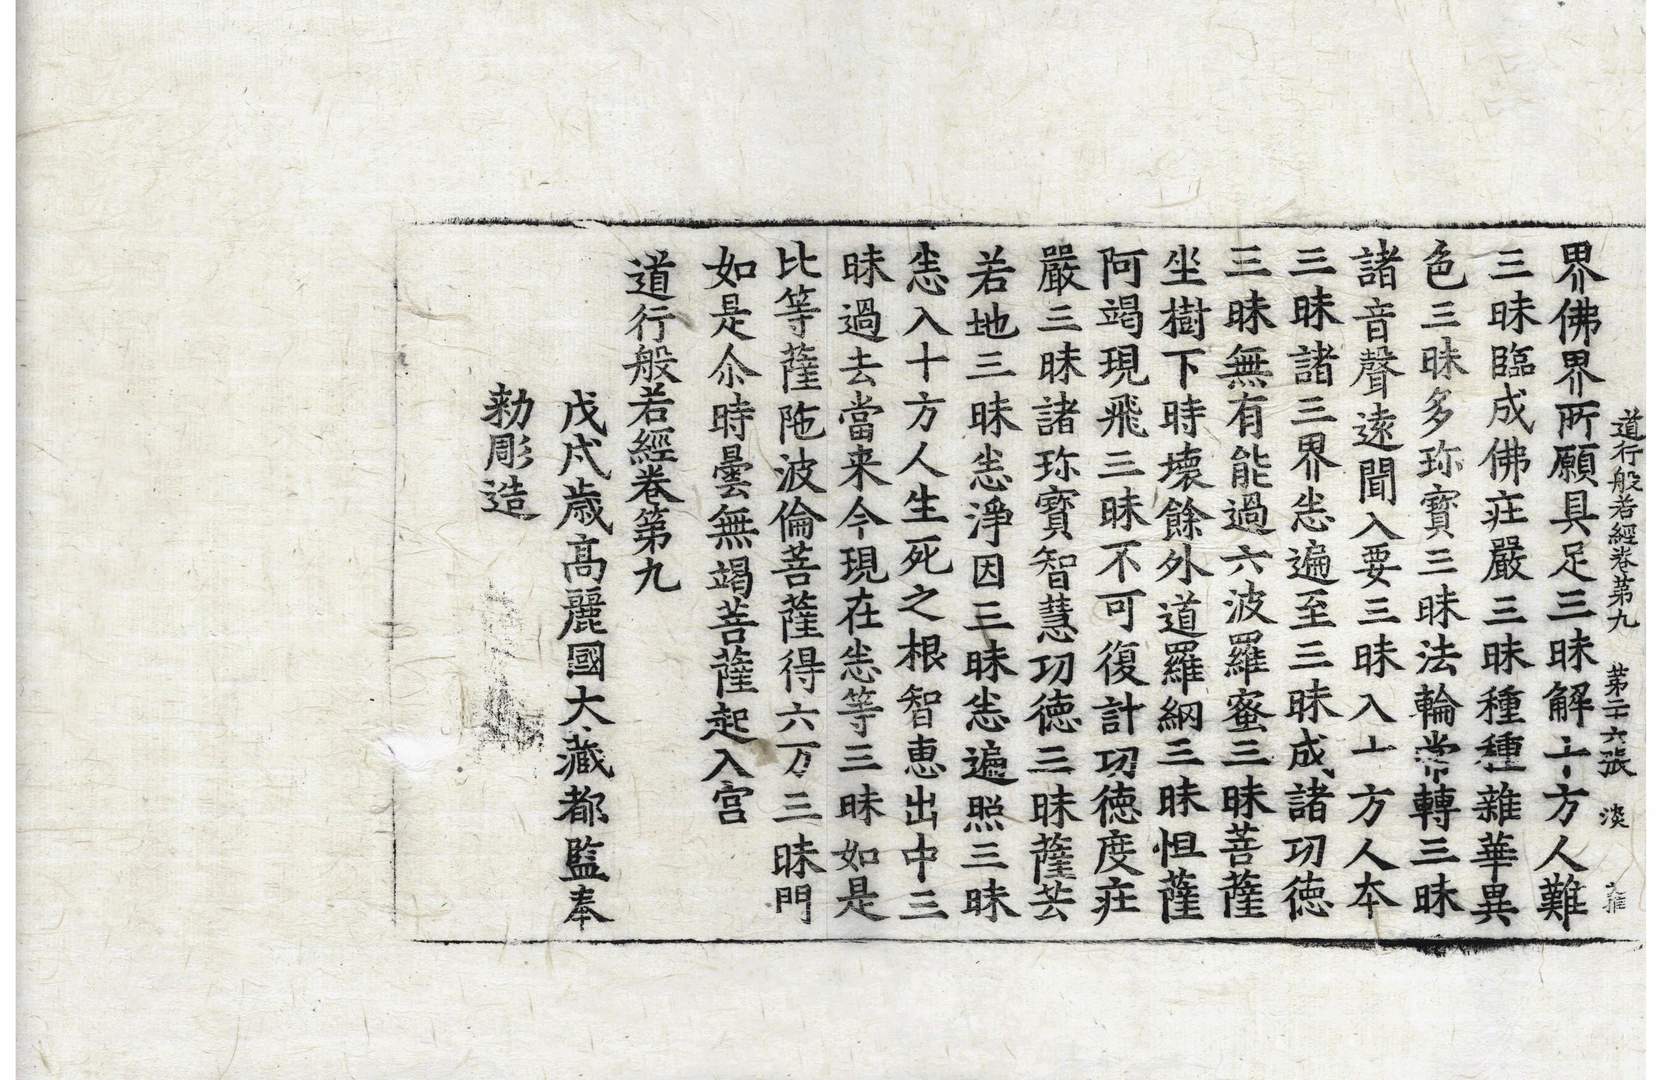 道行般若經卷第九 第二十六張 淡
界佛界所願具足三昧解十方人難
三昧臨成佛莊嚴三昧種種雜華異
色三昧多珎寶三昧法輪常轉三昧
諸音聲遠聞入要三昧入十方人本
三昧諸三界㤅遍至三昧成諸功德
三昧無有能過六波羅蜜三昧菩薩
坐樹下時壞餘外道羅網三昧怛薩
阿竭現飛三昧不可復計功德度莊
嚴三昧諸珎寶智慧功德三昧薩芸
若地三昧㤅淨因三昧㤅遍照三昧
㤅入十方人生死之根智惠出中三
昧過去當来今現在㤅等三昧如是
比等薩陁波倫菩薩得六万三昧門
如是尒時曇無竭菩薩起入宮
道行般若經卷第九
戊戌歲高麗國大藏都監奉
勑彫造